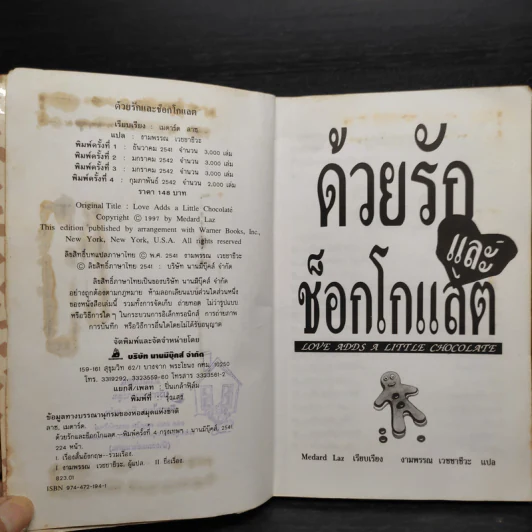 ด้วยรักและช็อกโกแลต
เรียบเรียง : เมดาร์ด ลาซ
แปล : งามพรรณ เวชชาชีวะ
พิมพ์ครั้งที่ 1 : ธันวาคม 2541 จำนวน 3,000 เล่ม
พิมพ์ครั้งที่ 2 : มกราคม 2542 จำนวน 3,000 เล่ม
พิมพ์ครั้งที่ 3 : มกราคม 2542 จำนวน 3,000 เล่ม
พิมพ์ครั้งที่ 4 : กุมภาพันธ์ 2542 จำนวน 2,000 เล่ม
ราคา 148 บาท
Original Title : Love Adds a Little Chocolate
Copyright © 1997 by Medard Laz
This edition published by arrangement with Warner Books, Inc.,
New York, New York, U.S.A. All rights reserved
ลิขสิทธิ์บทแปลภาษาไทย © พ.ศ. 2541 งามพรรณ เวชชาชีวะ
© ลิขสิทธิ์ภาษาไทย 2541 : บริษัท นานมีบุ๊คส์ จำกัด
ลิขสิทธิ์ภาษาไทยเป็นของบริษัท นานมีบุ๊คส์ จำกัด
อย่างถูกต้องตามกฎหมาย ห้ามลอกเลียนแบบส่วนใดส่วนหนึ่ง
ของหนังสือเล่มนี้ รวมทั้งการจัดเก็บ ถ่ายทอด ไม่ว่ารูปแบบ
หรือวิธีการใดๆ ในกระบวนการอิเล็กทรอนิกส์ การถ่ายภาพ
การบันทึก หรือวิธีการอื่นใดโดยไม่ได้รับอนุญาต
จัดพิมพ์และจัดจำหน่ายโดย
บริษัท นานมีบุ๊คส์ จำกัด
59-161 สุขุมวิท 62/1 บางจาก พระโขนง กทม. 10250
โทร. 3319292, 3323559-60 โทรสาร 3323561-2
แยกสี/เพลท : ปิ่นเกล้าฟิล์ม
พิมพ์ที่ : รุ้งเลซ่
ข้อมูลทางบรรณานุกรมของหอสมุดแห่งชาติ
ลาซ, เมดาร์ด.
ด้วยรักและช็อกโกแลต.--พิมพ์ครั้งที่ 4 กรุงเทพฯ : นานมีบุ๊คส์, 2541
224 หน้า.
1. เรื่องสั้นอังกฤษ--รวมเรื่อง.
I. งามพรรณ เวชชาชีวะ, ผู้แปล. II ชื่อเรื่อง.
823.01
ISBN 974-472-194-1
ด้วยรัก
และ
ช็อกโกแลต
LOVE ADDS A LITTLE CHOCOLATE
Medard Laz เรียบเรียง งามพรรณ เวชชาชีวะ แปล